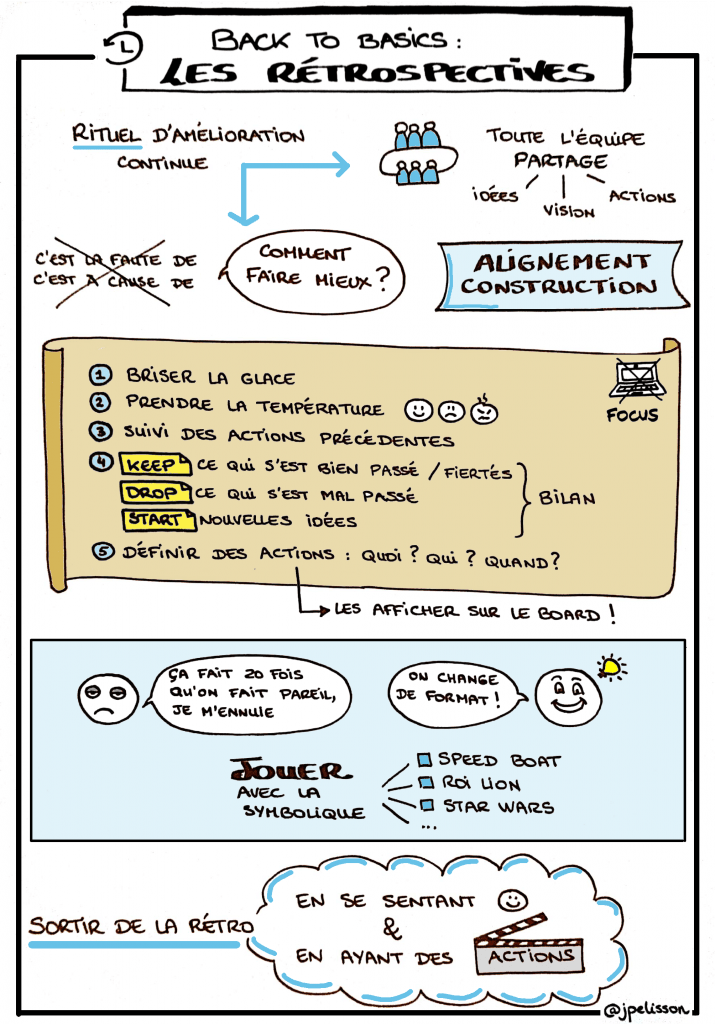 BACK TO BASICS :
LES RÉTROSPECTIVES
RITUEL D'AMÉLIORATION
CONTINUE
TOUTE L'ÉQUIPE
PARTAGE
IDÉES
VISION
ACTIONS
C'EST LA FAUTE DE
C'EST A CAUSE DE
COMMENT
FAIRE MIEUX ?
ALIGNEMENT
CONSTRUCTION
1 BRISER LA GLACE
2 PRENDRE LA TEMPÉRATURE
3 SUIVI DES ACTIONS PRÉCÉDENTES
FOCUS
4 KEEP CE QUI S'EST BIEN PASSÉ / FIERTÉS
DROP CE QUI S'EST MAL PASSÉ
START NOUVELLES IDÉES
BILAN
5 DÉFINIR DES ACTIONS : QUOI ? QUI ? QUAND ?
LES AFFICHER SUR LE BOARD !
ÇA FAIT 20 FOIS
QU'ON FAIT PAREIL,
JE M'ENNUIE
ON CHANGE
DE FORMAT !
JOUER
AVEC LA
SYMBOLIQUE
SPEED BOAT
ROI LION
STAR WARS
...
SORTIR DE LA RÉTRO
EN SE SENTANT
&
EN AYANT DES ACTIONS
@jpelisson